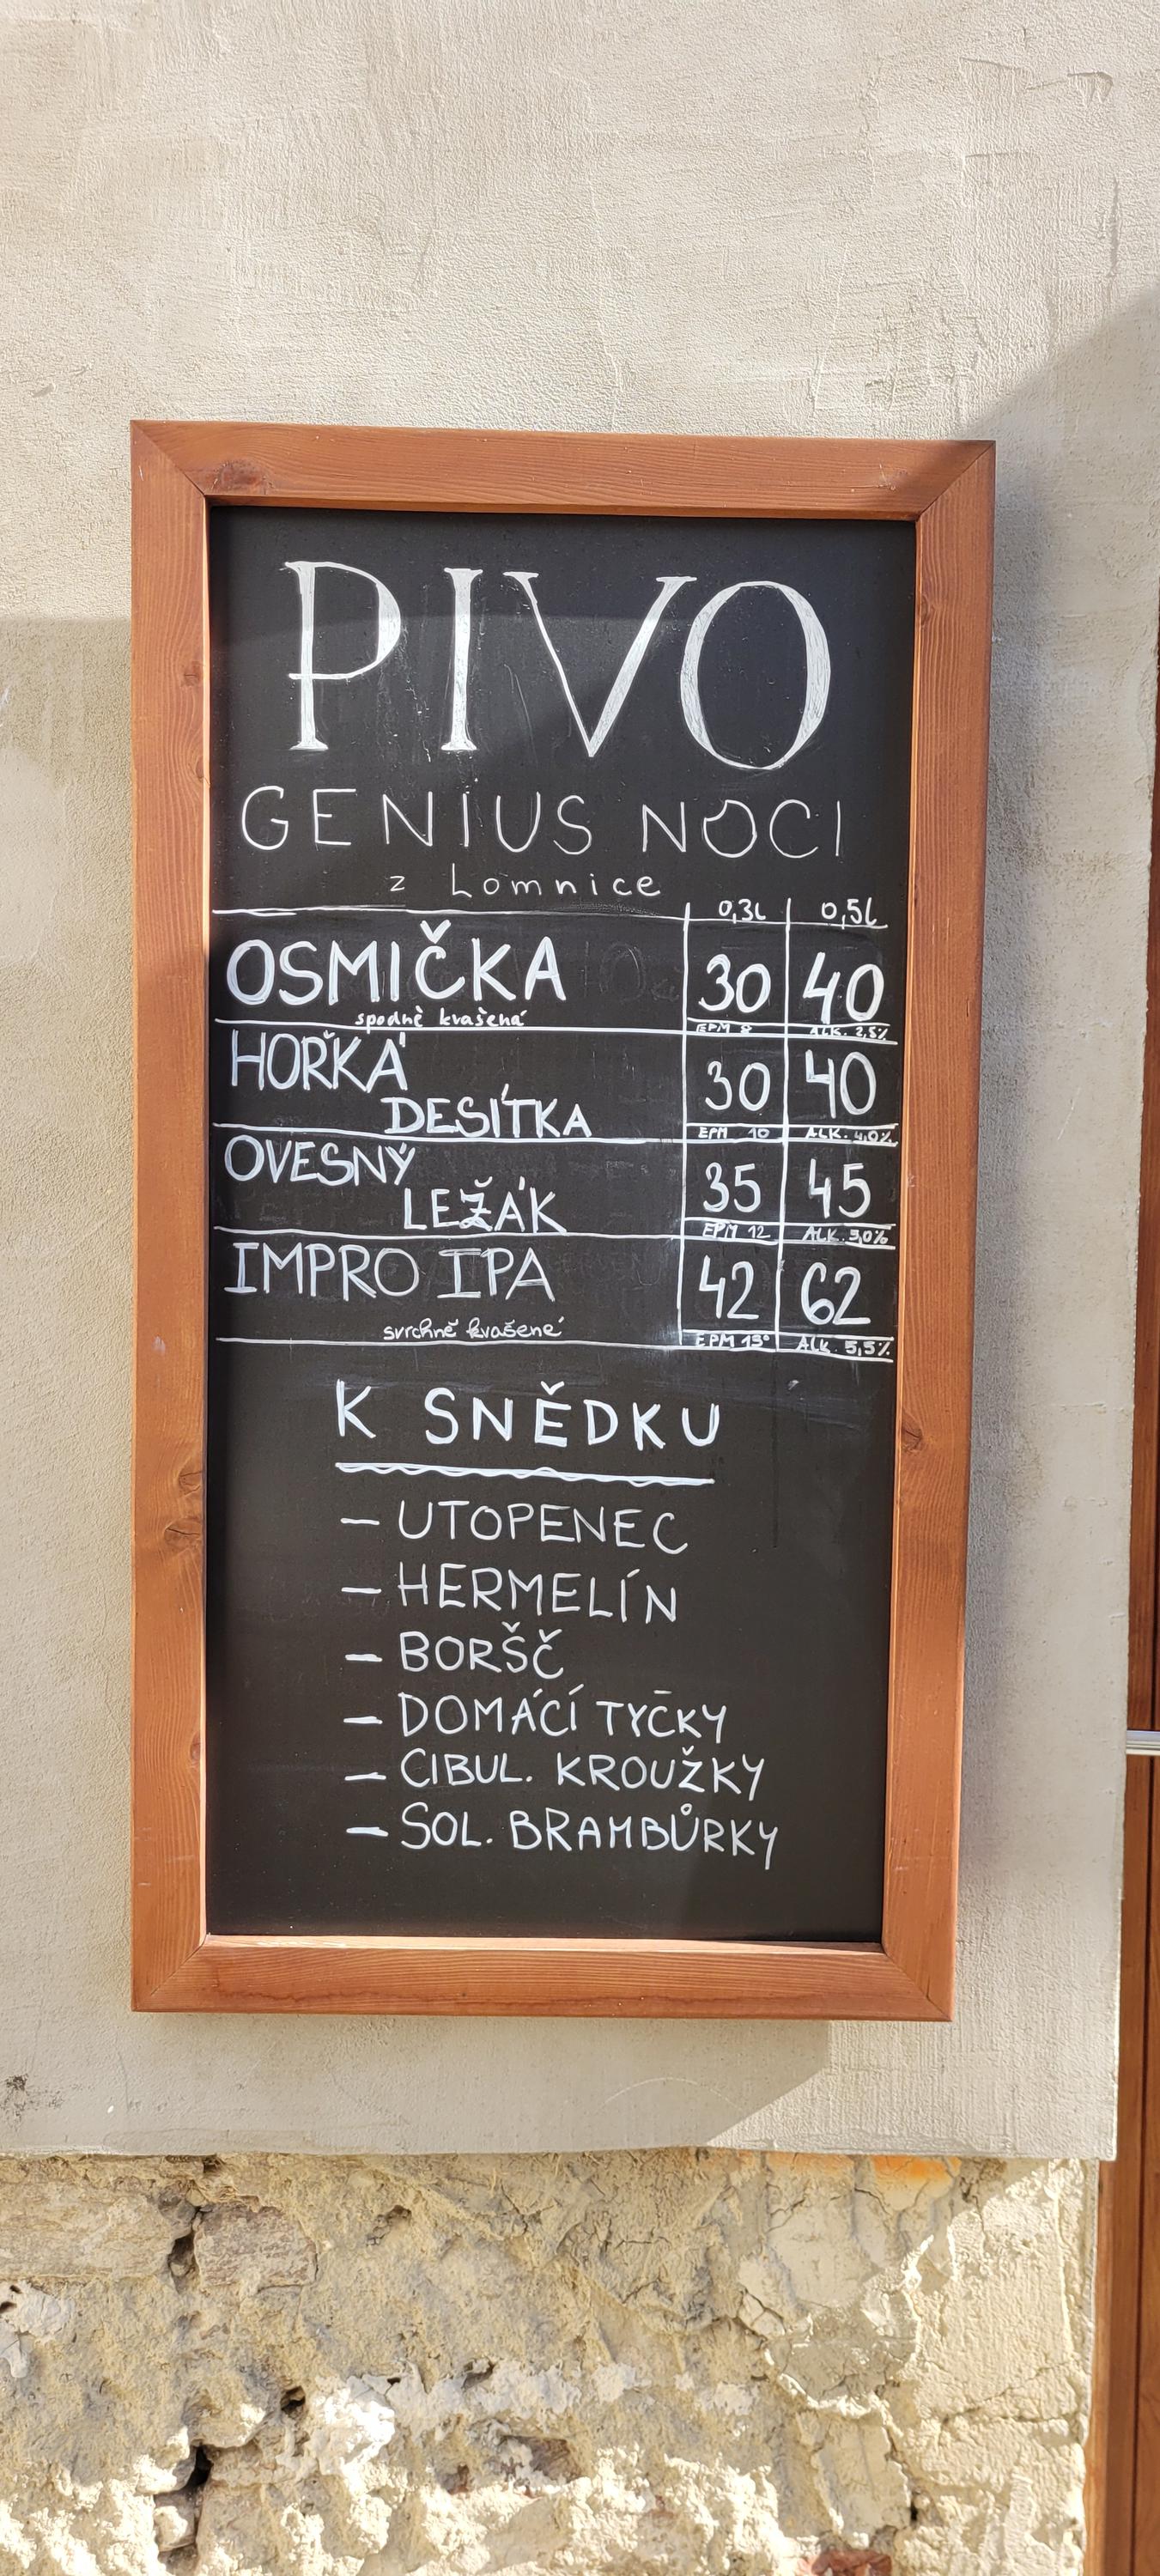 PIVO
GENIUS NOCI
z Lomnice
0,3l 0,5l
OSMIČKA 30 40
spodně kvašená EPM 8 ALK. 2,5%
HOŘKÁ
DESÍTKA 30 40
EPM 10 ALK. 4,0%
OVESNÝ
LEŽÁK 35 45
EPM 12 ALK. 5,0%
IMPRO IPA 42 62
svrchně kvašené EPM 15° ALK. 5,5%
K SNĚDKU
– UTOPENEC
– HERMELÍN
– BORŠČ
– DOMÁCÍ TYČKY
– CIBUL. KROUŽKY
– SOL. BRAMBŮRKY